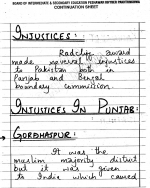 BOARD OF INTERMEDIATE & SECONDARY EDUCATION PESHAWAR
CONTINUATION SHEET
INJUSTICES:
Radcliff award
made several injustices
to Pakistan both in
Punjab and Bengal
boundary commission.
INJUSTICES IN PUNJAB:
GORDHASPUR:
It was the
muslim majority district
but it was given
to India which caused